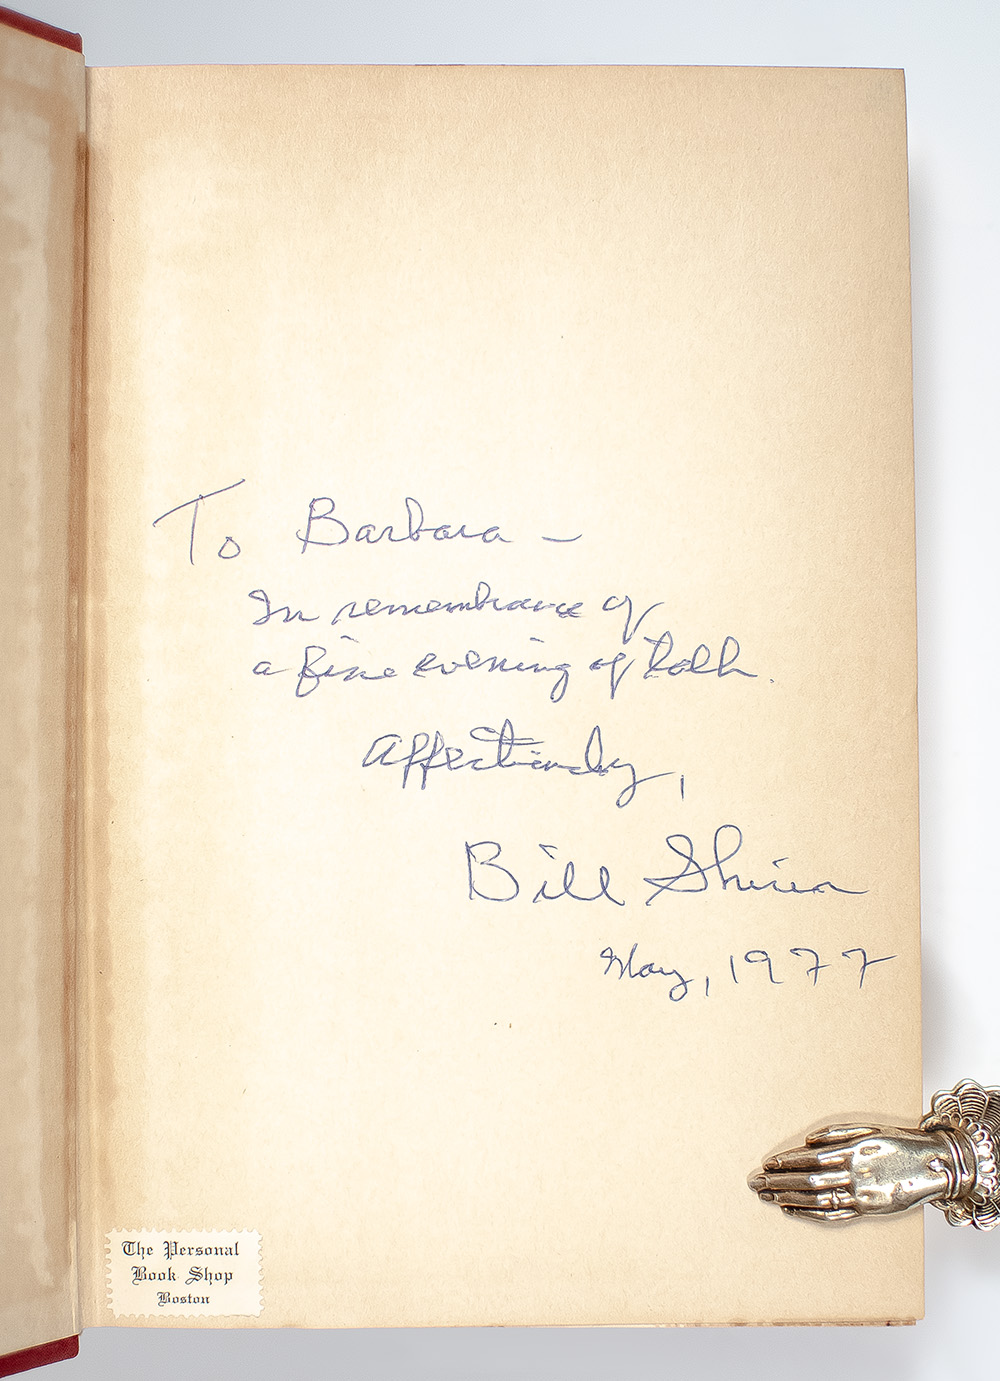 To Barbara —
In remembrance of
a fine evening of talk.
Affectionately,
Bill Shirer
May, 1977
The Personal
Book Shop
Boston